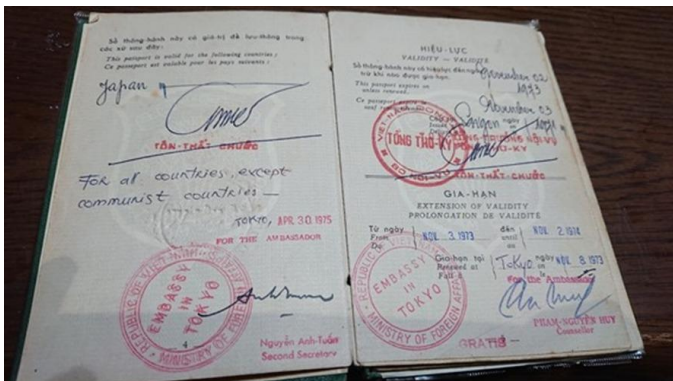 Số thông-hành này có giá-trị để lưu-thông trong
các xứ sau đây:
This passport is valid for the following countries:
Ce passeport est valable pour les pays suivants:
Japan
TÔN-THẤT-CHƯỚC
For all countries, except
communist countries —
TOKYO, APR. 30. 1975
FOR THE AMBASSADOR
REPUBLIC OF VIET-NAM
EMBASSY
IN
TOKYO
MINISTRY OF FOREIGN AFFAIRS
Nguyễn Anh-Tuấn
Second Secretary
4
HIỆU-LỰC
VALIDITY — VALIDITÉ
Số thông-hành này có hiệu-lực đến ngày
trừ khi nào được gia-hạn.
November 02
1973
This passport expires on
unless renewed.
Ce passeport expire
November 03
Saigon
ngày
1971
VIỆT-NAM CỘNG-HÒA
TỔNG THƠ-KÝ
BỘ NỘI-VỤ
TÔN-THẤT-CHƯỚC
GIA-HẠN
EXTENSION OF VALIDITY
PROLONGATION DE VALIDITÉ
Từ ngày
From
Du
NOV. 3. 1973
đến
until
au
NOV. 2. 1974
Gia-hạn tại
Renewed at
Tokyo
ngày
on
le
NOV. 8. 1973
For the Ambassador
REPUBLIC OF VIET-NAM
EMBASSY
IN
TOKYO
MINISTRY OF FOREIGN AFFAIRS
PHẠM-NGUYÊN HUY
Counseller
GRATIS